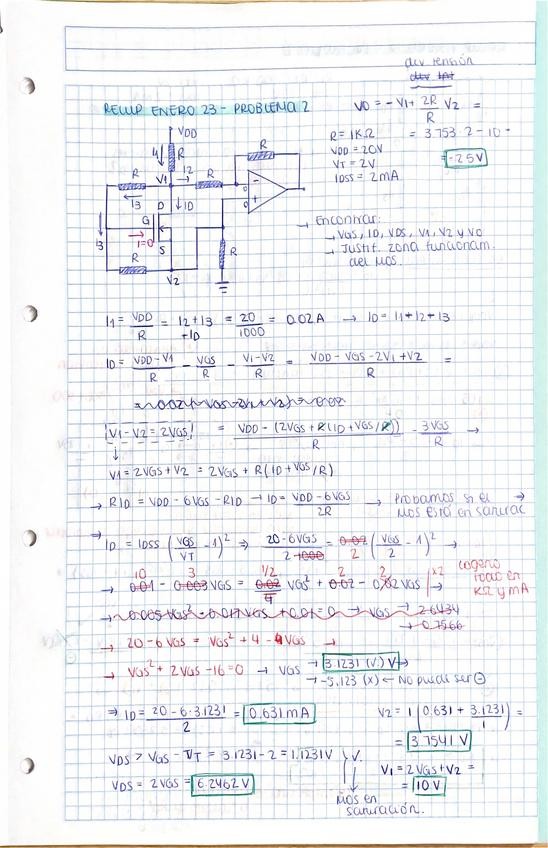 div tensión
RECUP ENERO 23 - PROBLEMA 2
V0 = -V1 + 2R/R V2 =
= 3.753·2 - 10 =
= -2.5V
R = 1KΩ
VDD = 20V
VT = 2V
IDSS = 2mA
VDD
I1
R
V1
I2
R
R
R
I3
D
ID
G
I=0
S
I3
R
V2
R
-
+
→ Encontrar:
→ VGS, ID, VDS, V1, V2 y V0
→ Justif. zona funcionam.
del MOS.
I1 = VDD/R = I2+I3+ID = 20/1000 = 0.02A → ID = I1+I2+I3
ID = VDD-V1/R - VGS/R - V1-V2/R = VDD-VGS-2V1+V2/R =
V1-V2 = 2VGS = VDD-(2VGS+R(ID+VGS/R))/R - 3VGS/R →
↓
V1 = 2VGS+V2 = 2VGS+R(ID+VGS/R)
→ RID = VDD-6VGS-RID → ID = VDD-6VGS/2R → Probamos si el →
MOS está en saturac
→ ID = IDSS (VGS/VT - 1)² → 20-6VGS/2·1000 = 0.02/2 (VGS/2 - 1)² →
cogemos todo en KΩ y mA
10 3 1/2 2 2 x2
→ 0.01 - 0.003 VGS = 0.02/4 VGS² + 0.02 - 0.02 VGS
→ 0.005VGS² - 0.017VGS + 0.01 = 0 → VGS → 2.6434
→ 0.7566
→ 20-6VGS = VGS²+4-4VGS →
→ VGS²+2VGS-16=0 → VGS → 3.1231 (V.) V →
→ -5.123 (x) ← No puede ser ⊖
⇒ ID = 20-6·3.1231/2 = 0.631mA
V2 = 1 (0.631 + 3.1231/1) =
= 3.7541 V
VDS > VGS - VT = 3.1231-2 = 1.1231V } V.
VDS = 2VGS = 6.2462V
MOS en
saturación.
V1 = 2VGS+V2 =
= 10V